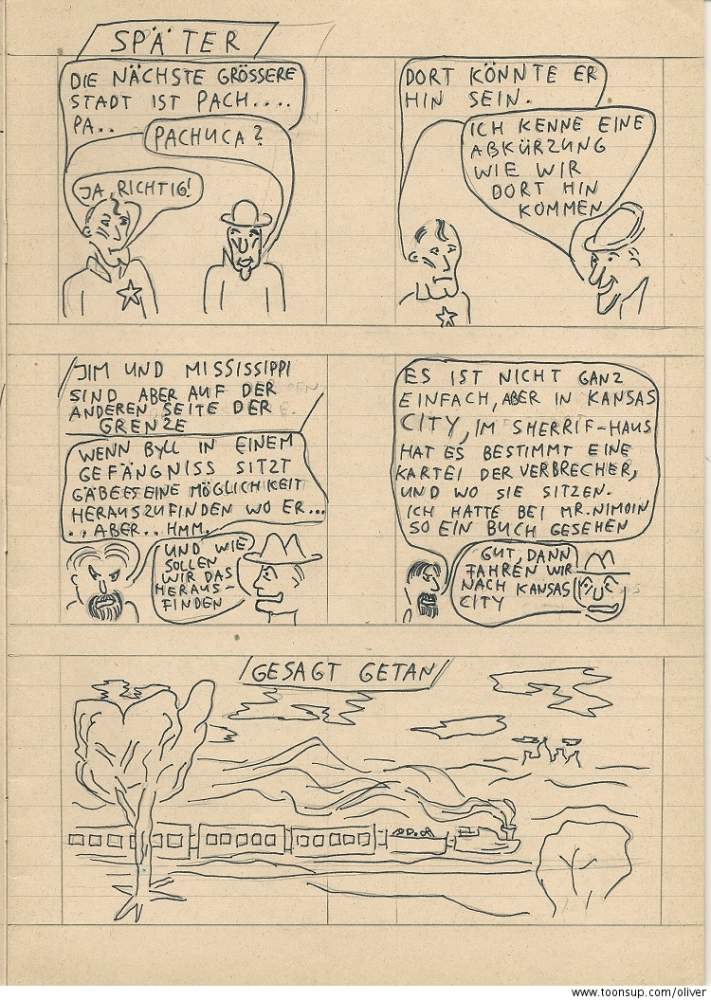 SPÄTER
DIE NÄCHSTE GRÖSSERE
STADT IST PACH....
PA..
PACHUCA?
JA, RICHTIG!
DORT KÖNNTE ER
HIN SEIN.
ICH KENNE EINE
ABKÜRZUNG
WIE WIR
DORT HIN
KOMMEN
JIM UND MISSISSIPPI
SIND ABER AUF DER
ANDEREN SEITE DER
GRENZE
WENN BYLL IN EINEM
GEFÄNGNISS SITZT
GÄBE ES EINE MÖGLICHKEIT
HERAUSZUFINDEN WO ER...
..ABER..HMM..
UND WIE
SOLLEN
WIR DAS
HERAUS-
FINDEN
ES IST NICHT GANZ
EINFACH, ABER IN KANSAS
CITY, IM SHERRIF-HAUS
HAT ES BESTIMMT EINE
KARTEI DER VERBRECHER,
UND WO SIE SITZEN.
ICH HATTE BEI MR. NIMOIN
SO EIN BUCH GESEHEN
GUT, DANN
FAHREN WIR
NACH KANSAS
CITY
GESAGT GETAN
www.toonsup.com/oliver